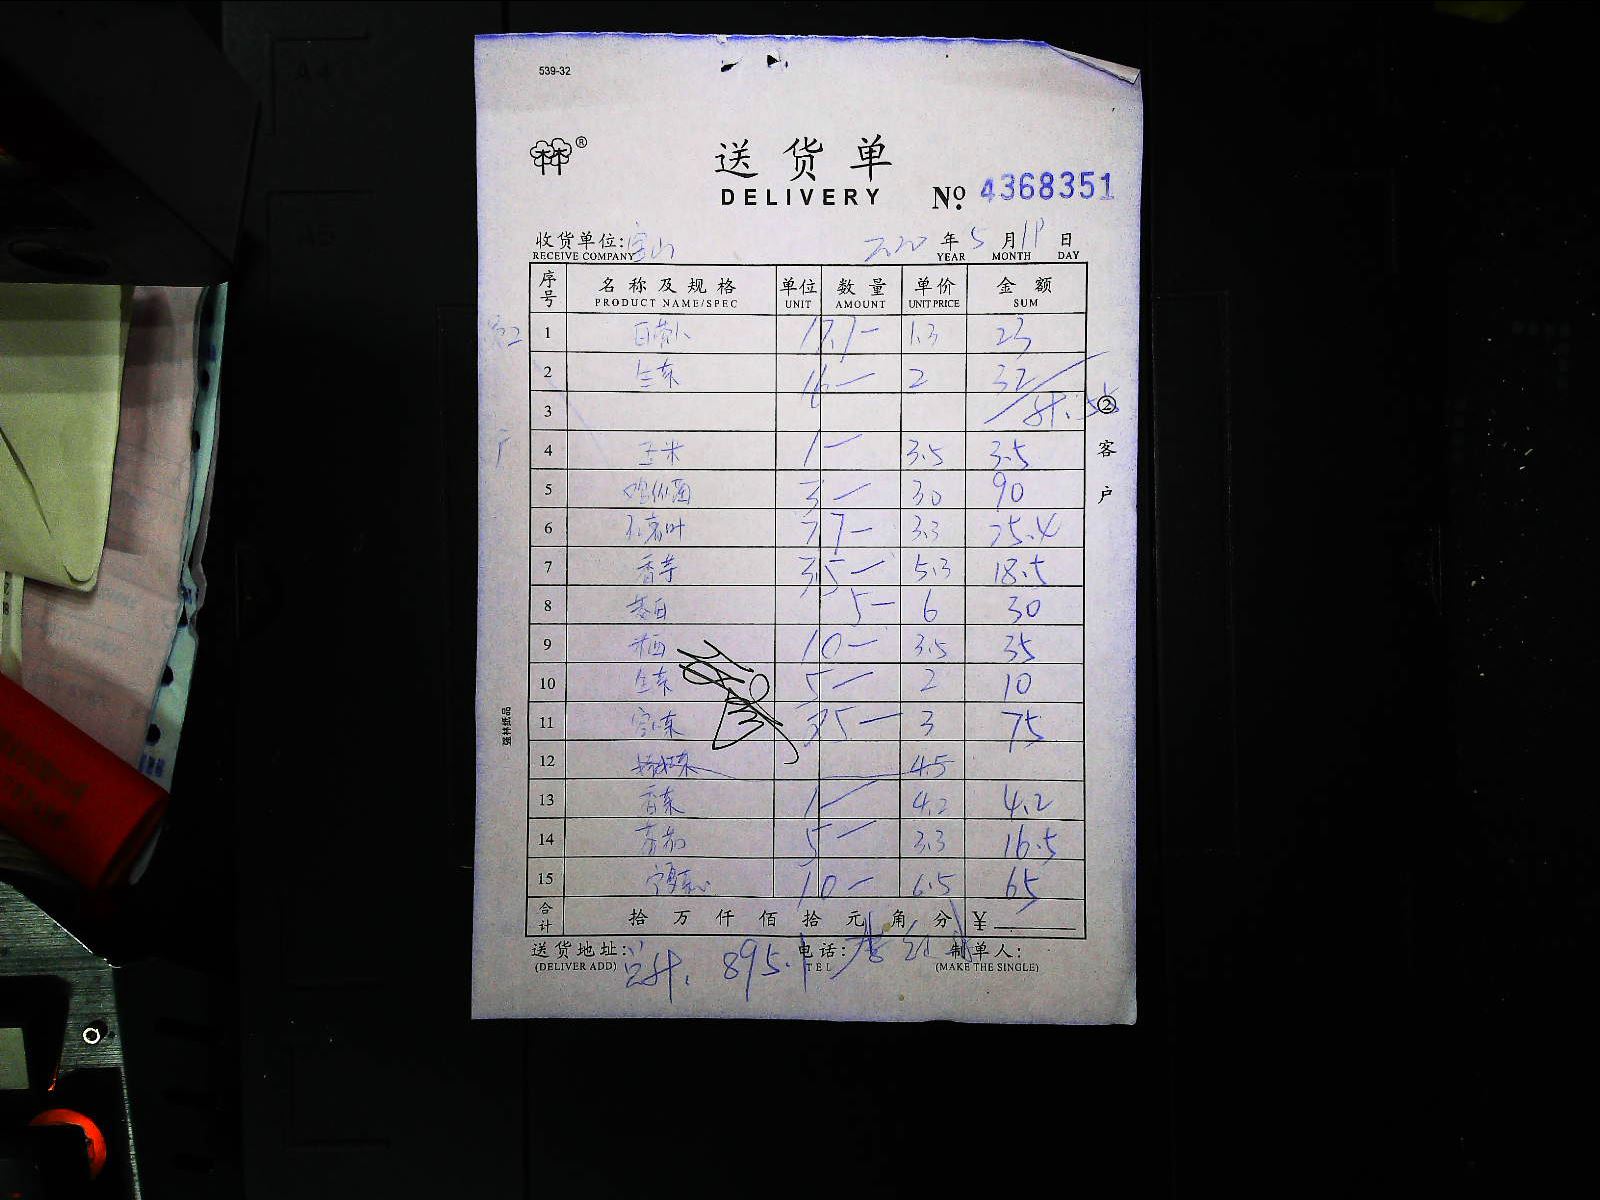 539-32
送货单
DELIVERY
№ 4368351
收货单位: 宝山 2020年5月19日
RECEIVE COMPANY YEAR MONTH DAY
序号 名称及规格 单位 数量 单价 金额
PRODUCT NAME/SPEC UNIT AMOUNT UNIT PRICE SUM
1 白萝卜 17.7 1.3 23
2 生菜 16 2 32
3
4 玉米 1 3.5 3.5
5 3 30 90
6 7.7 3.3 25.4
7 香芋 3.5 5.3 18.5
8 茭白 5 6 30
9 10 3.5 35
10 生菜 5 2 10
11 3 75
12 4.5
13 香菜 1 4.2 4.2
14 5 3.3 16.5
15 10 6.5 65
合计 拾万仟佰拾元角分 ¥
送货地址: 电话: 制单人:
(DELIVER ADD) TEL (MAKE THE SINGLE)
895.1
② 客户
强林纸品